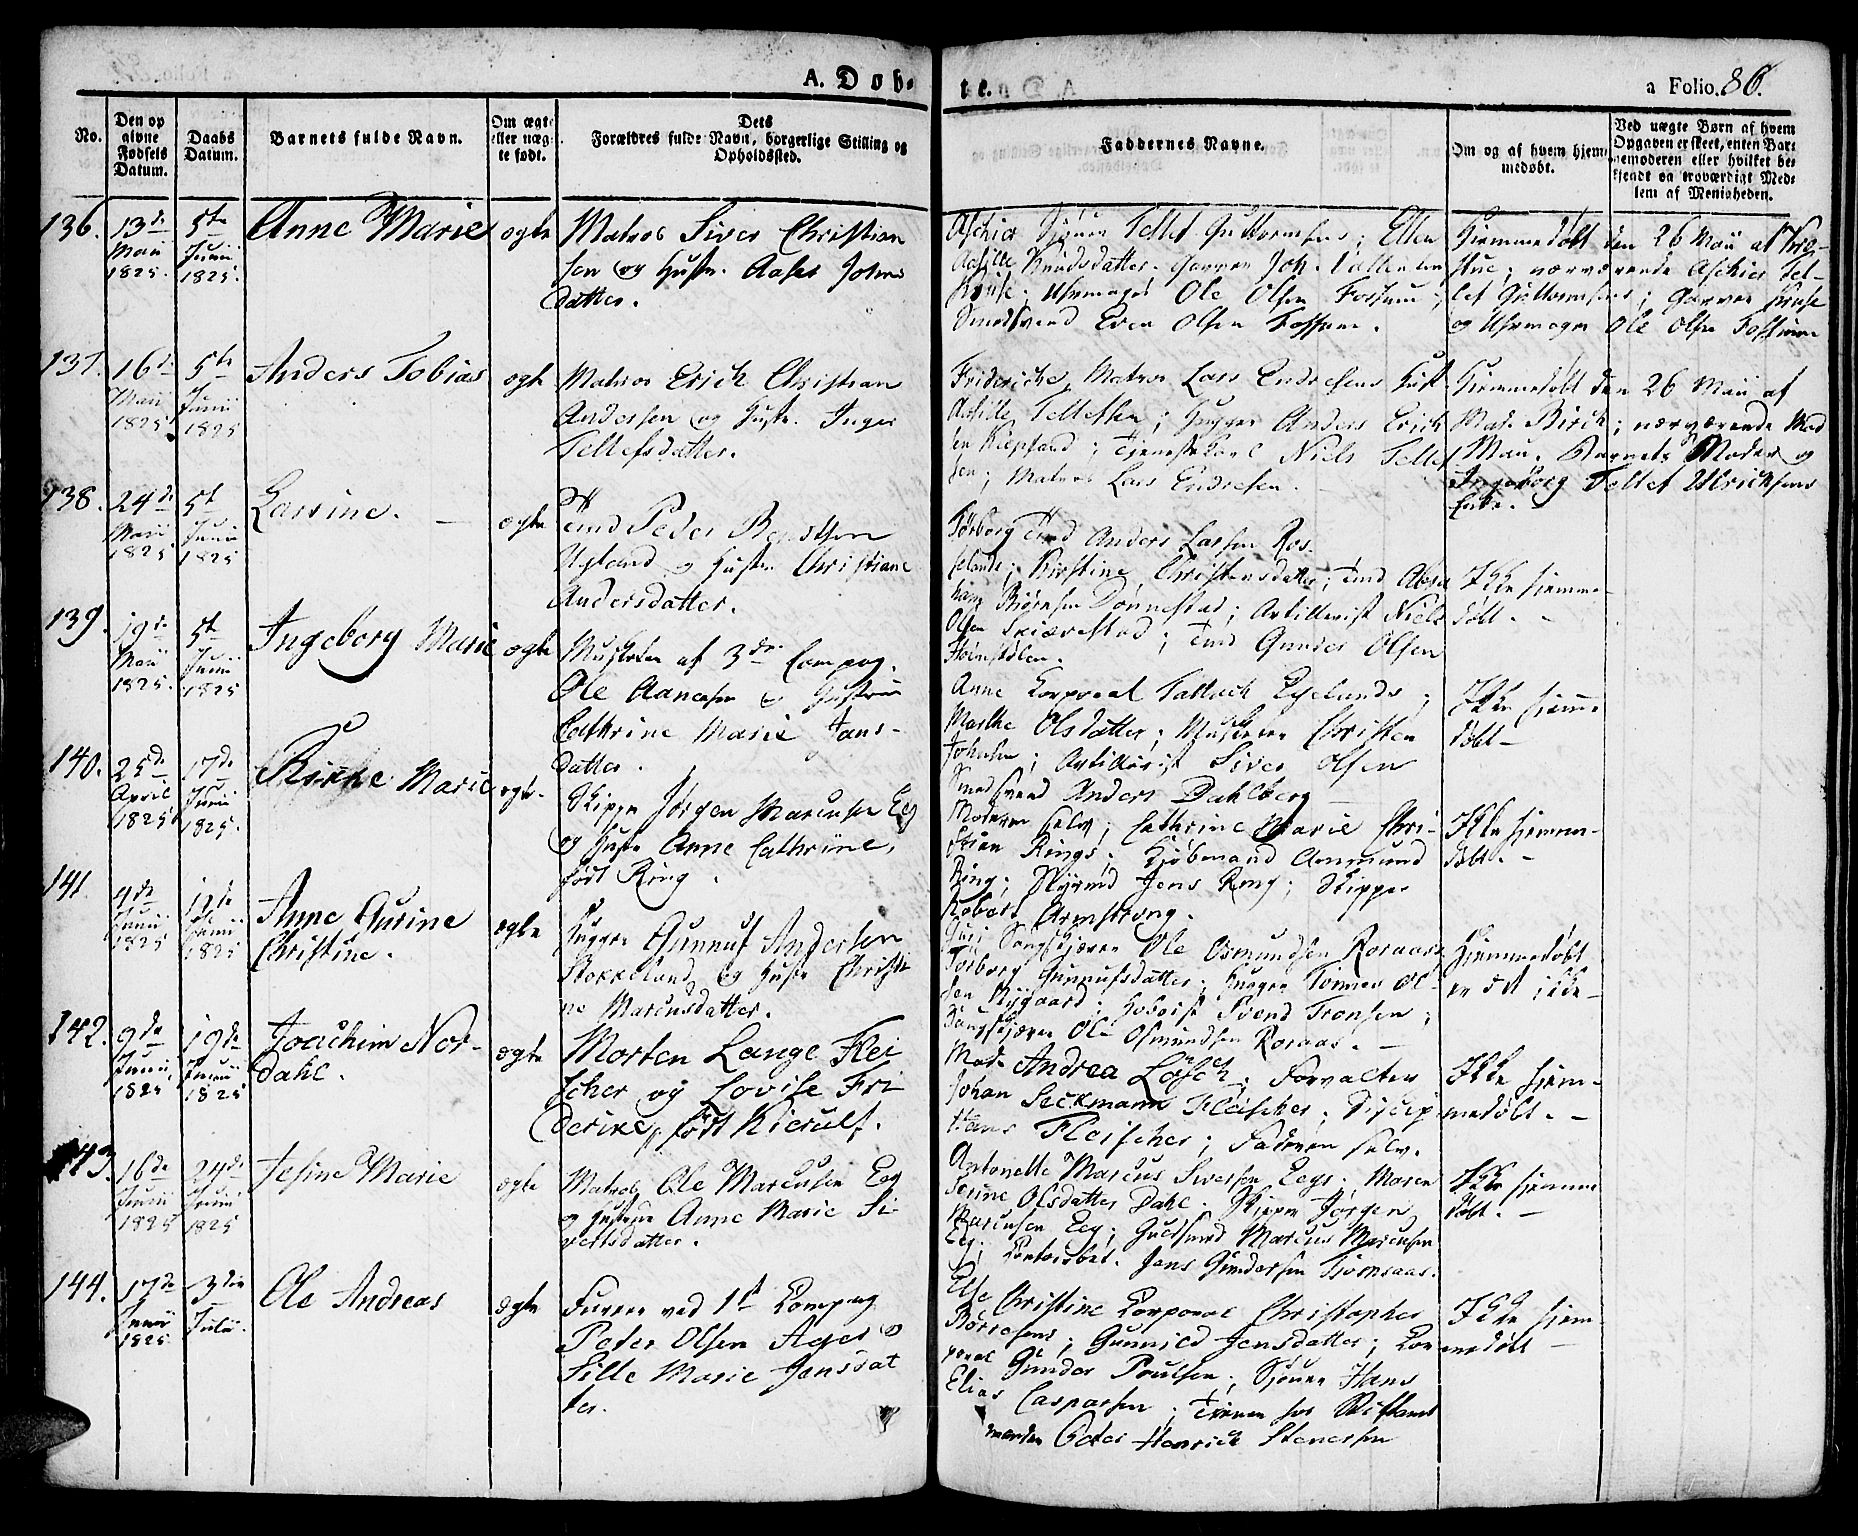 A. Døb-
te.
a Folio. 86.
No.
Den op
givne
Fødsels
Datum.
Daabs
Datum.
Barnets fulde Navn.
Om ægte
eller uæg-
te født.
Dets
Forældres fulde Navn, borgerlige Stilling og
Opholdssted.
Faddernes Navne.
Om og af hvem hjem-
medøbt.
Ved uægte Børn af hvem
Opgaven er skeet, enten Bar-
nemoderen eller hvilket be-
kjendt og troværdigt Med-
lem af Menigheden.
136.
13de
Maii
1825.
5te
Junii
1825.
Anne Marie
ægte
Matros Siver Christian
sen og Hustr. Aaser Johns
datter.
Tellef Guttormsens; Ellen
Knudsdatter. Garver Joh.
Kruse; Uhrmager Ole Olsen Fossum;
Smedsvend Even Olsen Fossum.
Hjemmedøbt den 26 Maii af
nærværende
Guttormsens; Garver Kruse
og Uhrmager Ole Olsen Fossum
137.
16de
Maii
1825.
5te
Junii
1825
Anders Tobias
ægte
Matros Erich Christian
Andersen og Hustr. Inger
Tellefsdatter.
Friderike Matros Lars Endresens Hust
Tellefsen; Hugger Anders Erich
sen; Tjenestekarl Niels Tellef
sen; Matros Lars Endresen.
Hjemmedøbt den 26 Maii af
Mad. Birch; nærværende Mad
Barnets Moder og
Ingeborg Tellef Ulricksens
Enke.
138.
24de
Maii
1825.
5te
Junii
1825
Larsine.
ægte
Tmd Peder Bendtsen
Ugland og Hustr. Christiane
Andersdatter.
Torborg Tmd Anders Larsen Ros-
selands; Kirstine Christensdatter; Tmd Abra
ham Biørnsen Dønnestad; Artillerist Niels
Olsen Skiærestad; Tmd Gunder Olsen
Ikke hjemme-
døbt.
139.
19de
Maii
1825.
5te
Junii
1825
Ingeborg Marie
ægte
Musketer af 3de Compag.
Ole Aanensen og Hustrue
Cathrine Marie Jans-
datter.
Anne Corporal Tallack Egelands;
Marthe Olsdatter; Musketer Christen
Johnsen; Artillerist Siver Olsen
Smedsvend Anders Dahlberg
Ikke hjemme
døbt
140.
25de
April
1825.
17de
Junii
1825.
Marie
ægte.
Skipper Jørgen Marcusen Eeg
og Hustr. Anne Cathrine,
født Ring.
Moderen selv; Cathrine Marie Chri-
stian Rings; Kjøbmand Ammund
Ring; Styrmd Jens Ring; Skipper
Robert Armstrong.
Ikke hjemme-
døbt.
141.
9de
Junii
1825
19de
Junii
1825
Anne Gurine
Christine.
ægte
Hugger Gunnuf Andersen
Stokkeland og Hustr. Christi
ne Marcusdatter.
Guri Sangskjærer Ole Osmundsen Roraas;
Torborg Gunnufsdatter; Hugger Tønnes Ol-
sen Nygaard; Svend Tronsen;
Sangskjærer Ole Osmundsen Roraas.
Hjemmedøbt
er det ikke
142.
9de
Junii
1825
19de
Junii
1825
Joachim Nor-
dahl.
ægte
Morten Lange Flei
scher og Lovise Fri
derike, født Kierulf.
Mad. Andrea Lösch; Forvalter
Johan Seckmann Fleischer; Discip
Hans Fleischer; Faderen selv.
Ikke hjem-
medøbt.
143.
16de
Junii
1825
24de
Junii
1825
Jesine Marie
ægte
Matros Ole Marcusen Eeg
og Hustrue Anne Marie Si-
vertsdatter.
Antonette Marcus Siversen Eegs; Maren
Serine Olsdatter Dahl; Skipper Jørgen
Marcusen Eeg; Guldsmed Marcus Marcusen
Eeg; Contoirbet. Jens Gundersen Tjomsaas.
Ikke hjemme
døbt.
144.
17de
Junii
1825.
3die
Julii.
Ole Andreas
ægte
Furer ved 1st Compag
Peter Olsen Ager og
Sille Marie Jensdat
ter.
Else Christine Corporal Christopher
Børresens; Gunnild Jensdatter; Cor
poral Gunder Poulsen; Hans
Elias Caspersen; Tjener hos Stiftamt
manden Peder Henrich Stenersen
Ikke hjem-
medøbt